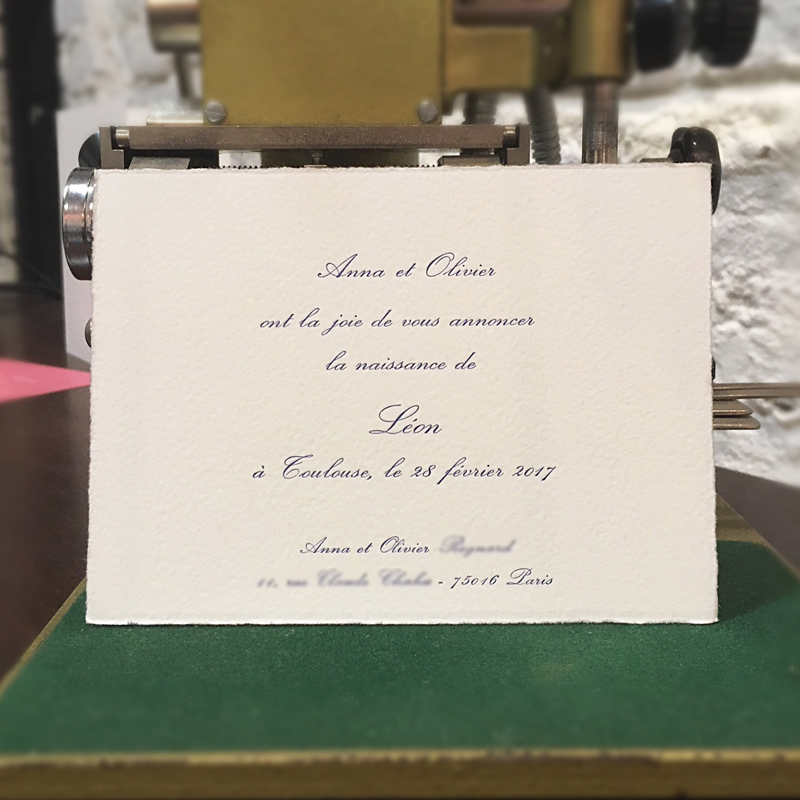 Anna et Olivier
ont la joie de vous annoncer
la naissance de
Léon
à Toulouse, le 28 février 2017
Anna et Olivier
- 75016 Paris